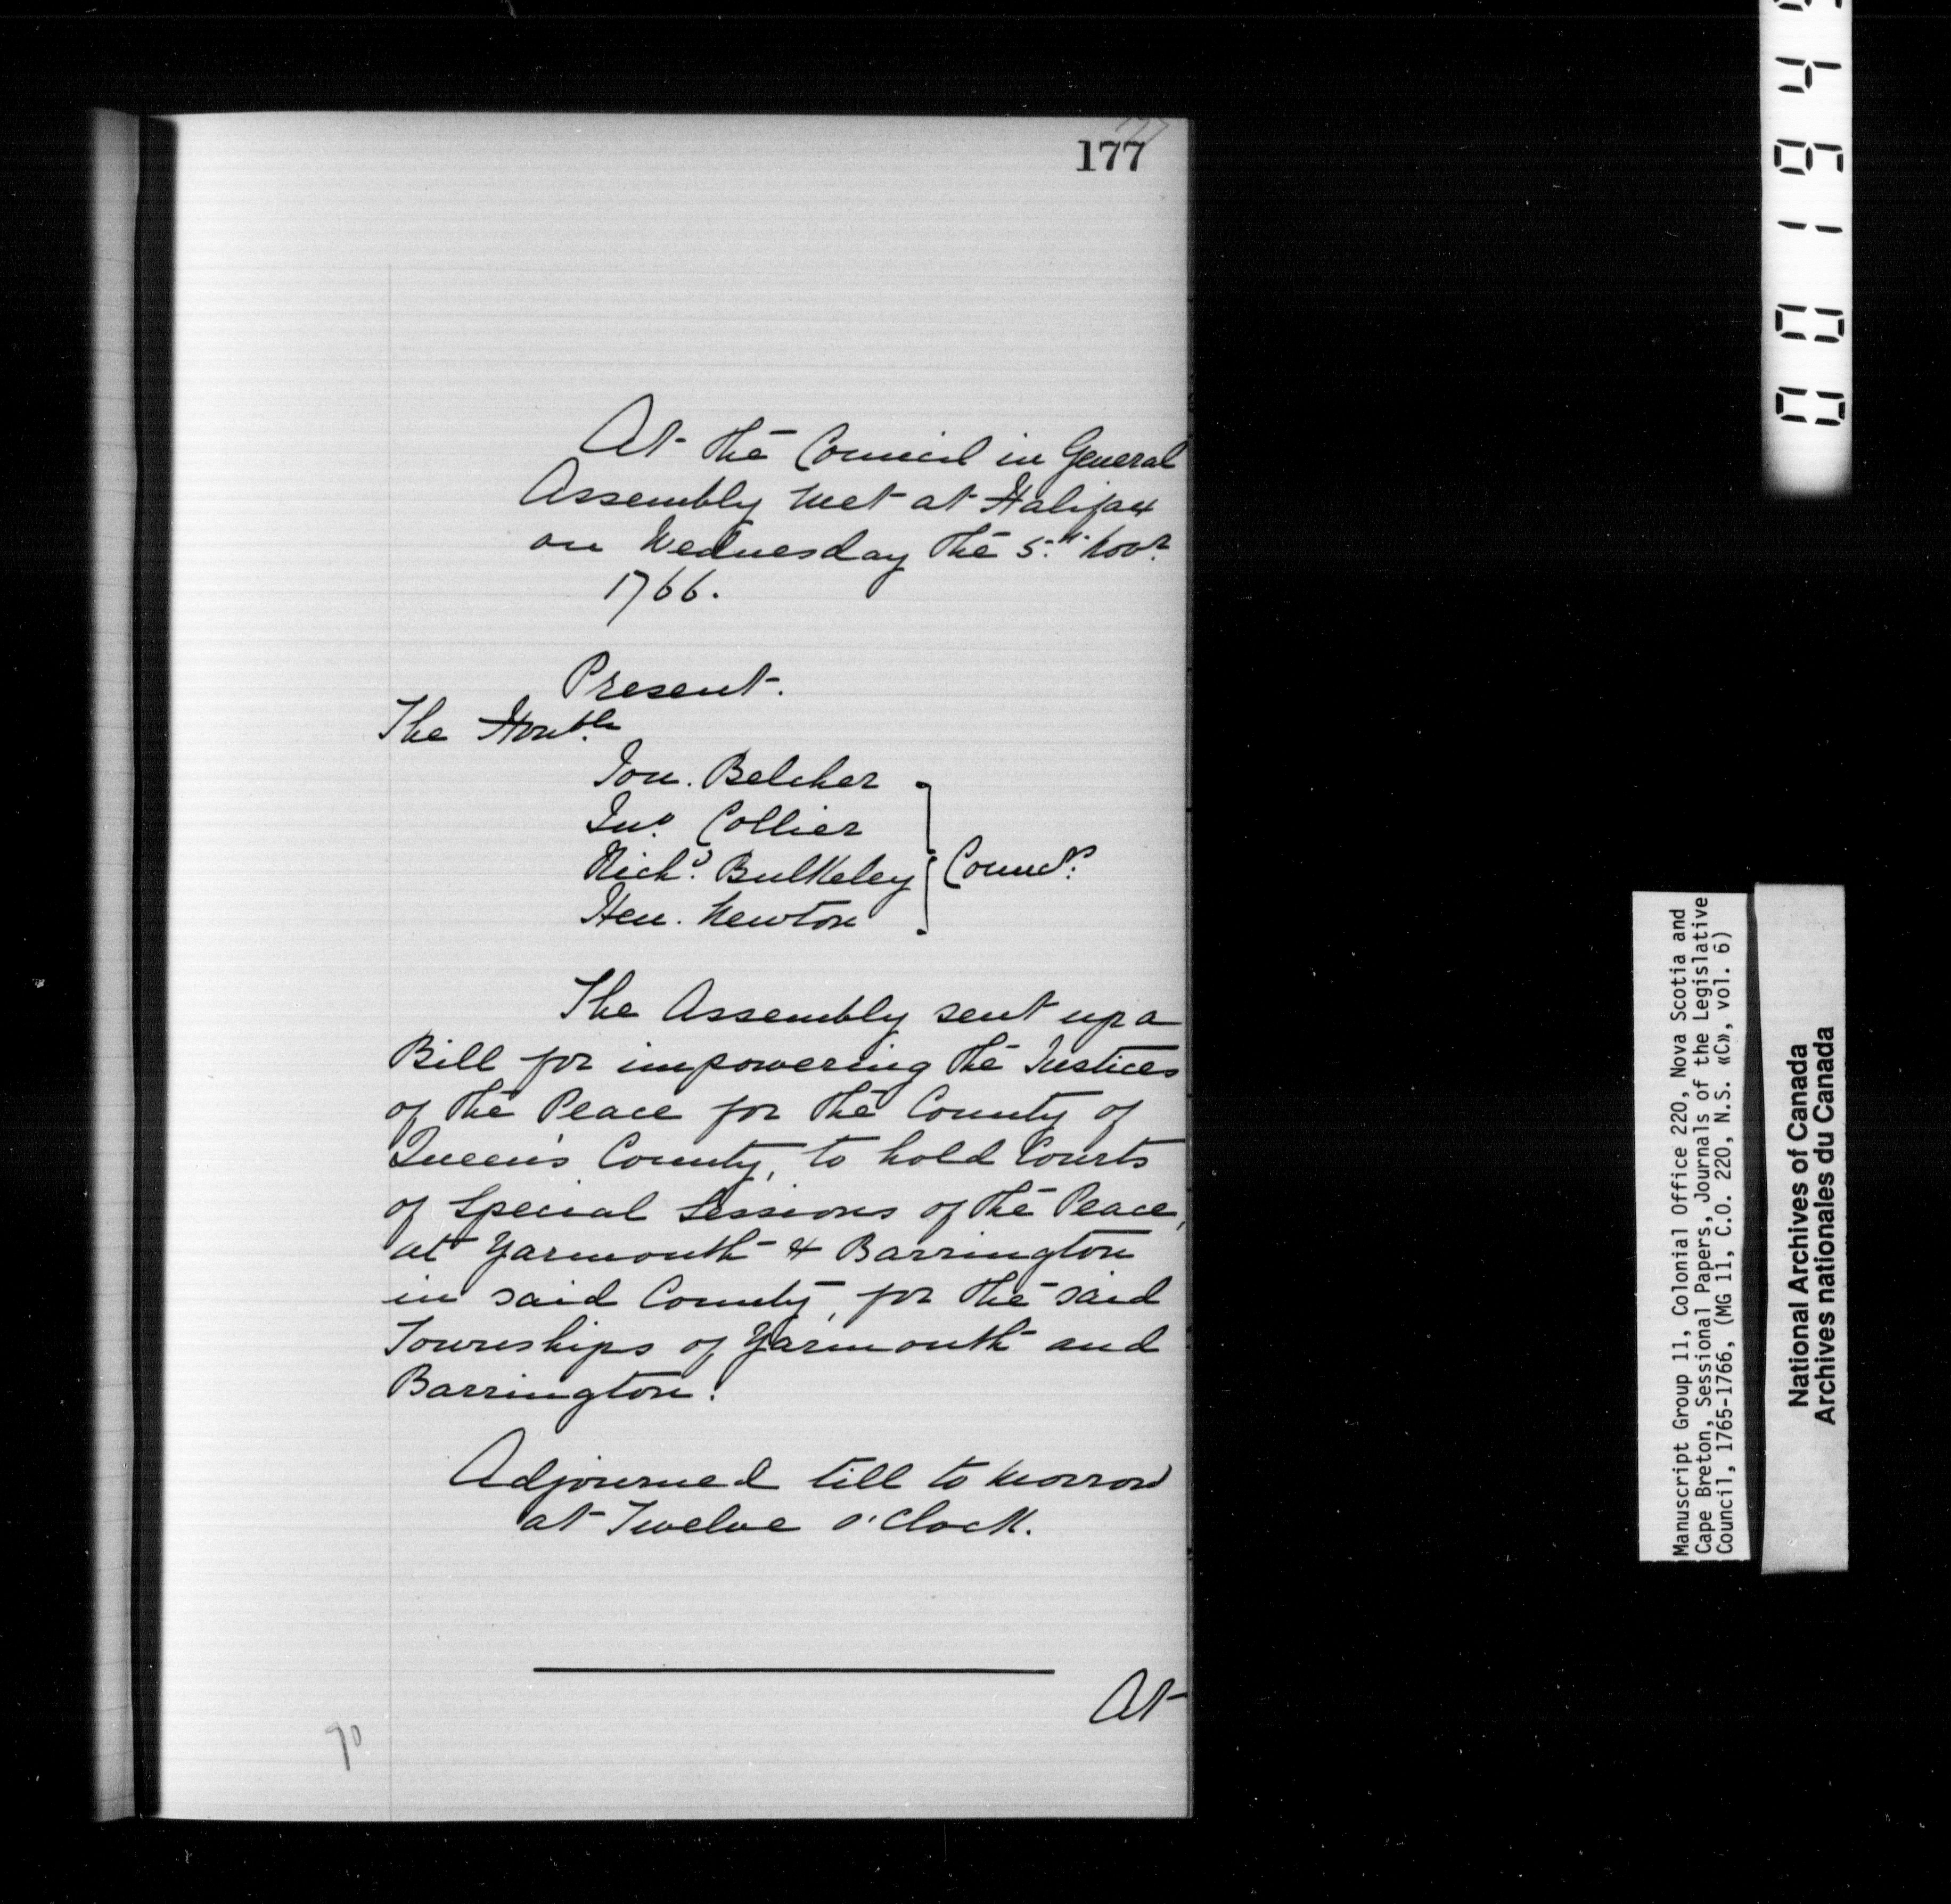 177
At the Council in General
Assembly met at Halifax
on Wednesday the 5th Novr
1766.
Present.
The Honble
Jon. Belcher
Jno. Collier
Richd. Bulkeley
Hen. Newton
Councrs.
The Assembly sent up a
Bill for impowering the Justices
of the Peace for the County of
Queen's County, to hold Courts
of Special Sessions of the Peace,
at Yarmouth & Barrington
in said County, for the said
Townships of Yarmouth and
Barrington.
Adjourned till to morrow
at Twelve o'Clock.
At
90
Manuscript Group 11, Colonial Office 220, Nova Scotia and
Cape Breton, Sessional Papers, Journals of the Legislative
Council, 1765-1766, (MG 11, C.O. 220, N.S. «C», vol. 6)
National Archives of Canada
Archives nationales du Canada